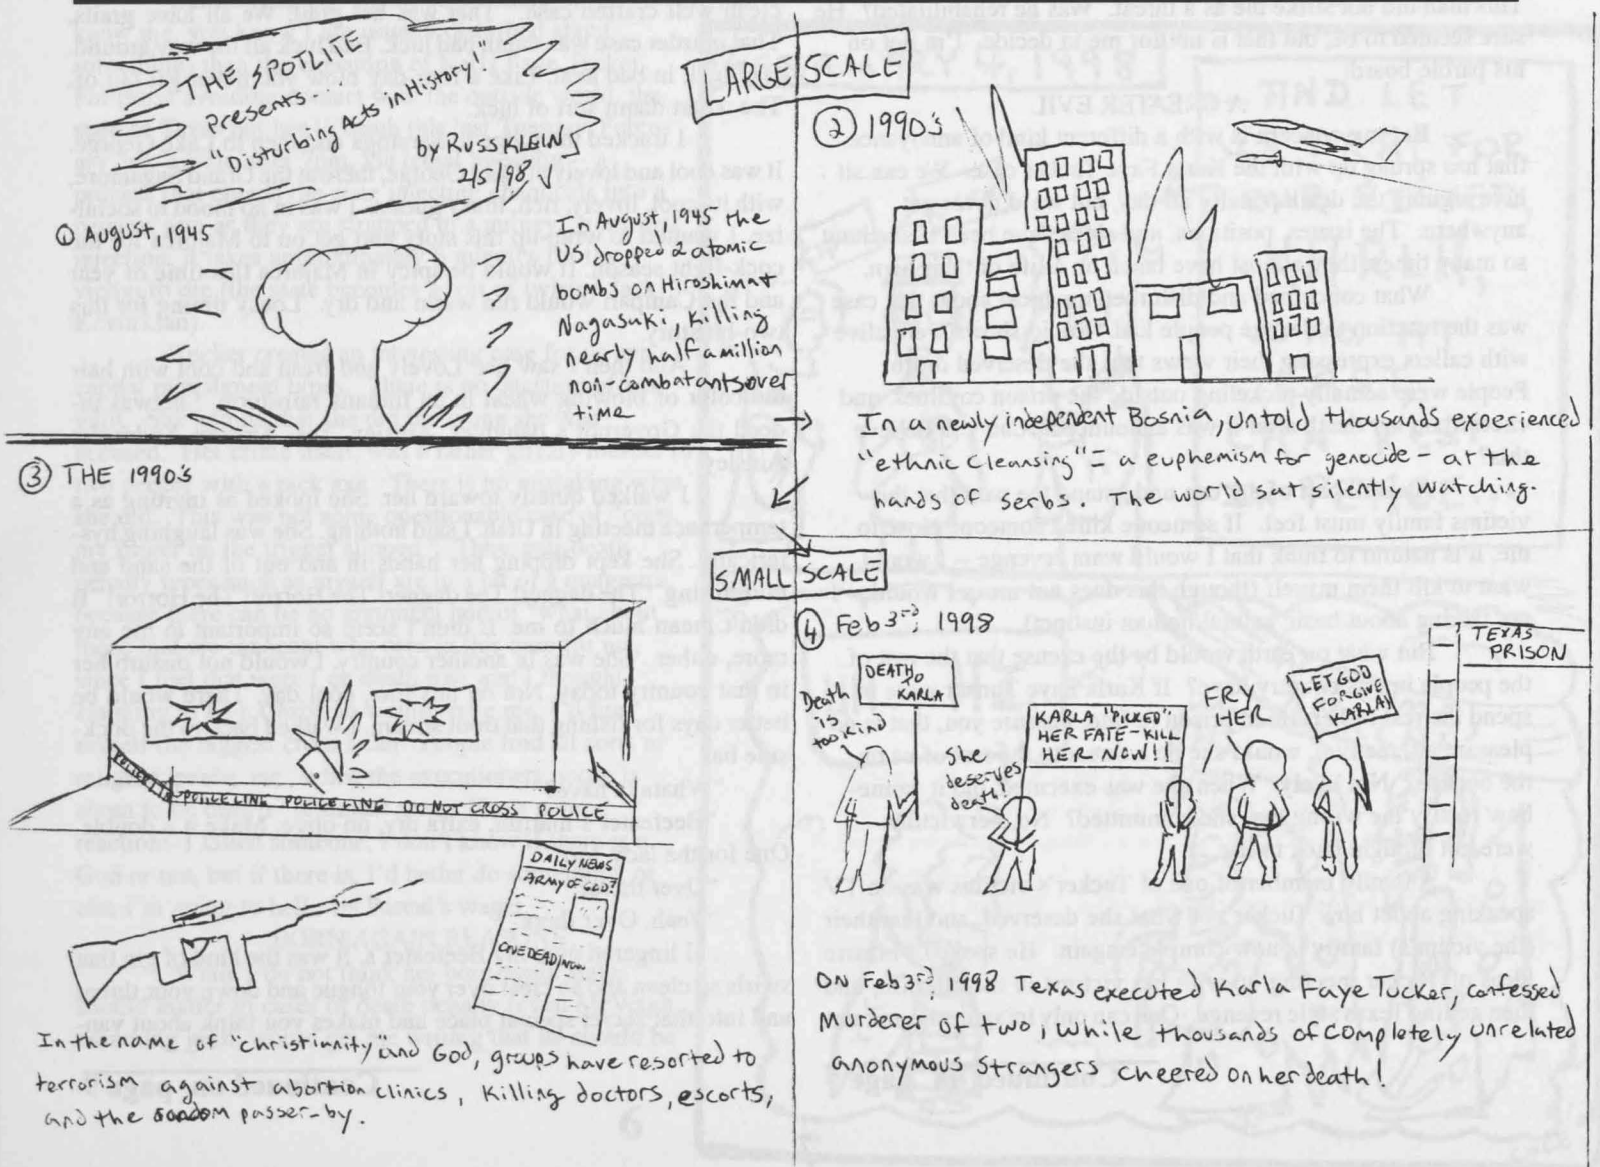 THE SPOTLITE
Presents...
"Disturbing Acts in History"
by RUSS KLEIN
2/5/98
LARGE SCALE
① AUGUST, 1945
In August, 1945 the
US dropped 2 atomic
bombs on Hiroshima &
Nagasuki, Killing
nearly half a million
non-combatants over
time
② 1990's
In a newly independent Bosnia, untold thousands experienced
"ethnic Cleansing" = a euphemism for genocide - at the
hands of serbs. The world sat silently watching.
③ THE 1990's
POLICE LINE POLICE LINE DO NOT CROSS POLICE
DAILY NEWS
ARMY OF GOD?
ONE DEAD
In the name of "christianity" and God, groups have resorted to
terrorism against abortion clinics, killing doctors, escorts,
and the random passer-by.
SMALL SCALE
④ Feb 3rd, 1998
Death
is
too kind
DEATH
TO
KARLA
She
deserves
death
KARLA "PICKED"
HER FATE - KILL
HER NOW!!
FRY
HER
LET GOD
FORGIVE
KARLA!
TEXAS
PRISON
ON Feb 3rd, 1998 Texas executed Karla Faye Tucker, confessed
Murderer of two, while thousands of completely unrelated
anonymous strangers cheered on her death!